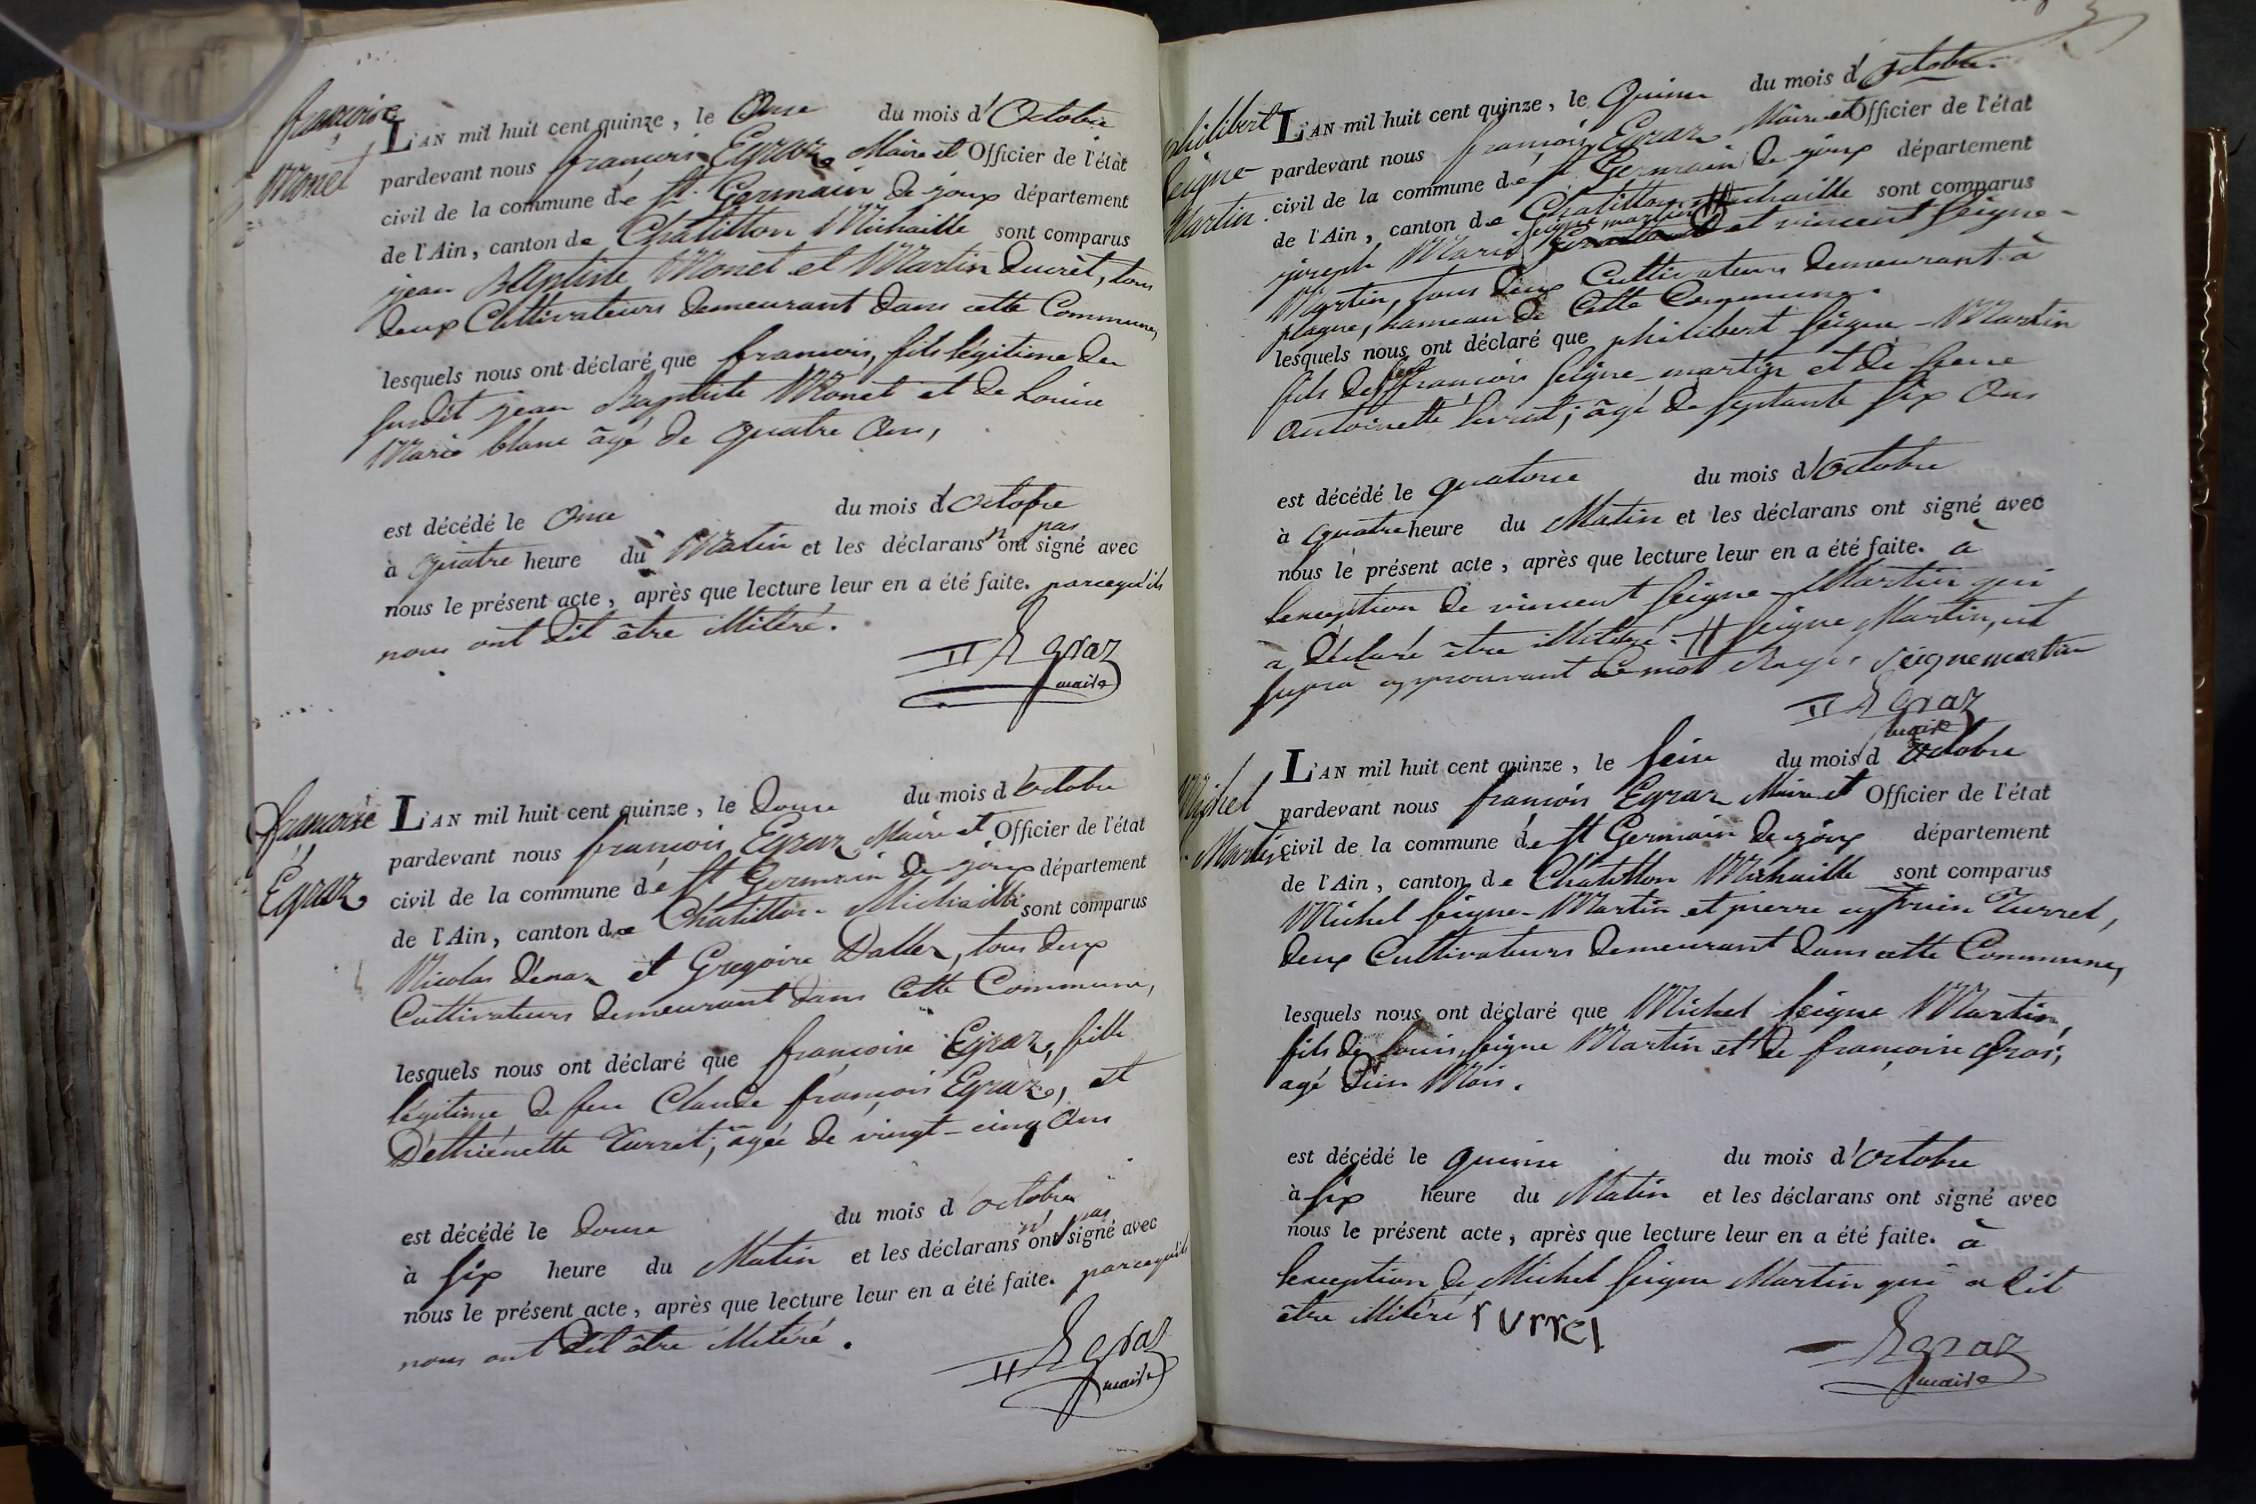 françois
Monet
L'AN mil huit cent quinze, le Onze du mois d'Octobre
pardevant nous françois Egraz Maire et Officier de l'état
civil de la commune de St. Germain de joux département
de l'Ain, canton de Châtillon Michaille sont comparus
jean Baptiste Monet et Martin Ducrêt, tous
deux Cultivateurs demeurant dans cette Commune,
lesquels nous ont déclaré que francois, fils légitime du
susdit jean Baptiste Monet et de Louise
Marie blanc âgé de quatre Ans,
est décédé le Onze du mois d'octobre
à quatre heure du Matin et les déclarans n'ont pas signé avec
nous le présent acte, après que lecture leur en a été faite. parcequ'ils
nous ont dit être illitéré.
Egraz
maire
françoise
Egraz
L'AN mil huit cent quinze, le Douze du mois d'octobre
pardevant nous françois Egraz Maire et Officier de l'état
civil de la commune de St Germain de joux département
de l'Ain, canton de Chatillon Michaille sont comparus
Nicolas et Gregoire tous deux
Cultivateurs demeurant dans Cette Commune,
lesquels nous ont déclaré que françoise Egraz, fille
légitime de feu Claude françois Egraz, et
D'éthiénette Turrét, âgée de vingt-cinq Ans
est décédé le Douze du mois d'octobre
à six heure du Matin et les déclarans n'ont pas signé avec
nous le présent acte, après que lecture leur en a été faite. parcequ'ils
nous ont dit être illitéré.
Egraz
maire
philibert
Seigne-
Martin.
L'AN mil huit cent quinze, le Quinze du mois d'Octobre.
pardevant nous françois Egraz Maire et Officier de l'état
civil de la commune de St Germain de joux département
de l'Ain, canton de Chatillon Michaille sont comparus
joseph Marie Seigne martin et vincent Seigne-
Martin, tous deux Cultivateurs demeurant à
plagne, hameau de Cette Commune.
lesquels nous ont déclaré que philibert Seigne-Martin
fils de feu françois Seigne-martin et de feue
Antoinette âgé de septante six Ans
est décédé le quatorze du mois d'Octobre
à quatre heure du Matin et les déclarans ont signé avec
nous le présent acte, après que lecture leur en a été faite. à
l'exception de vincent Seigne-Martin qui
a déclaré être illitéré. H Seigne Martin, ut
supra approuvant le mot Rayé. Seigne martin
Egraz
maire
Michel
Martin
L'AN mil huit cent quinze, le seize du mois d'octobre
pardevant nous françois Egraz Maire et Officier de l'état
civil de la commune de St Germain de joux département
de l'Ain, canton de Châtillon Michaille sont comparus
Michel Seigne-Martin et pierre Turrel,
deux Cultivateurs demeurant dans cette Commune,
lesquels nous ont déclaré que Michel Seigne Martin,
fils de louis Seigne Martin et de françoise Gros,
agé d'un Mois.
est décédé le quinze du mois d'octobre
à six heure du Matin et les déclarans ont signé avec
nous le présent acte, après que lecture leur en a été faite. à
l'exception de Michel Seigne Martin qui a dit
être illitéré Turrel
Egraz
maire